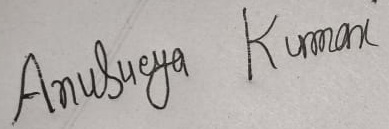 Anusueya Kumari